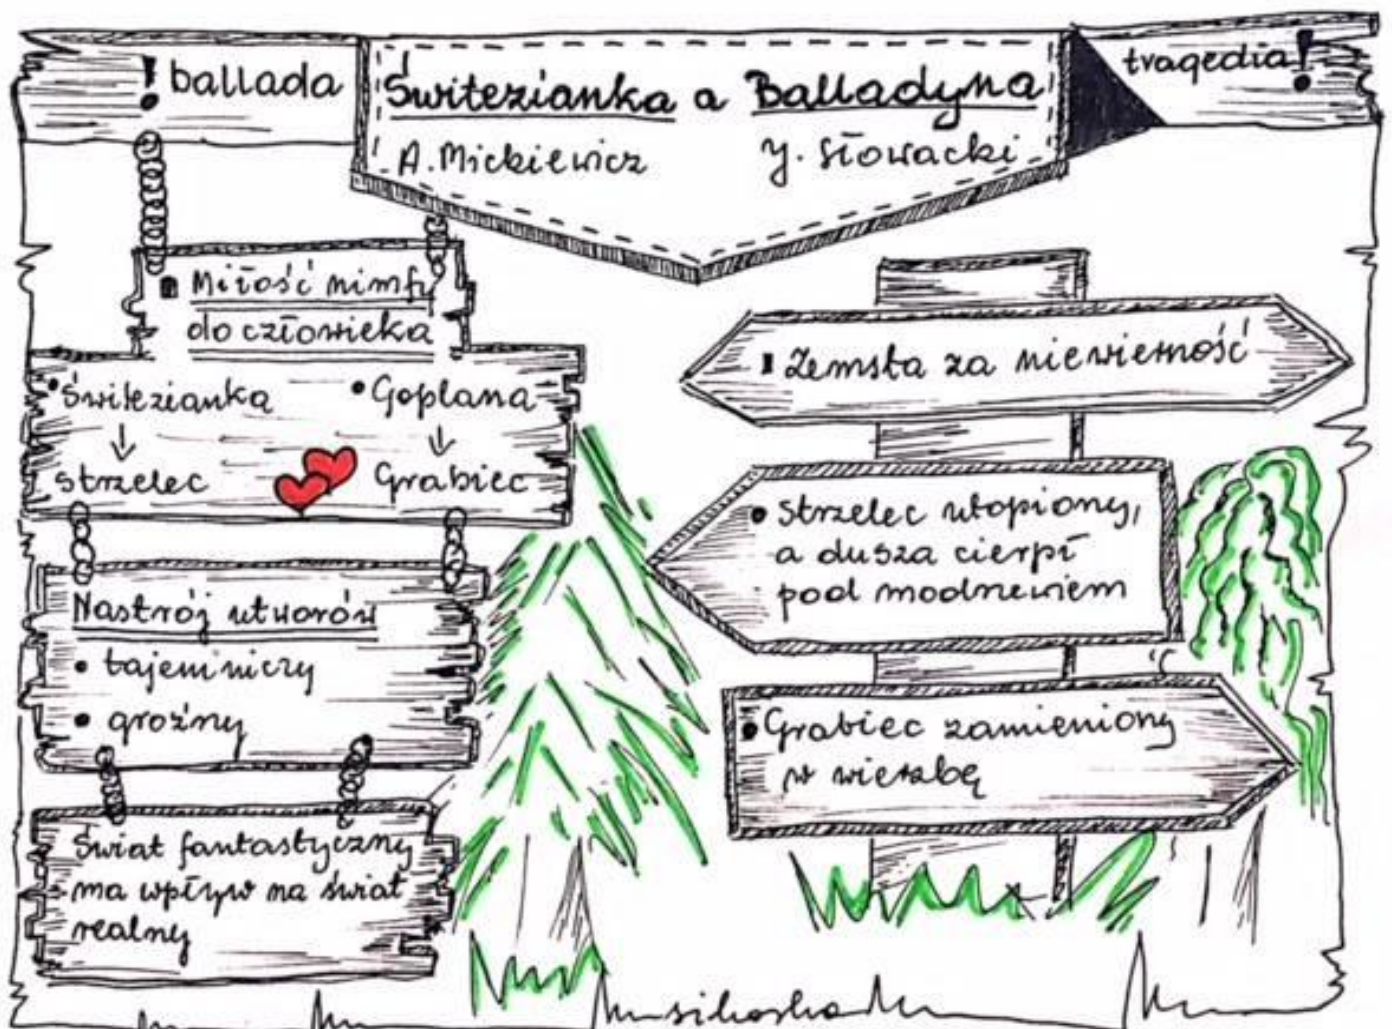 ! ballada
Świtezianka a Balladyna
tragedia!
A. Mickiewicz
J. Słowacki
Miłość nimfy
do człowieka
• Świtezianka
• Goplana
↓
↓
strzelec
Grabiec
Nastrój utworów
• tajemniczy
• groźny
Świat fantastyczny
ma wpływ na świat
realny
Zemsta za niewierność
• Strzelec utopiony,
a dusza cierpi
pod modrzewiem
• Grabiec zamieniony
w wierzbę